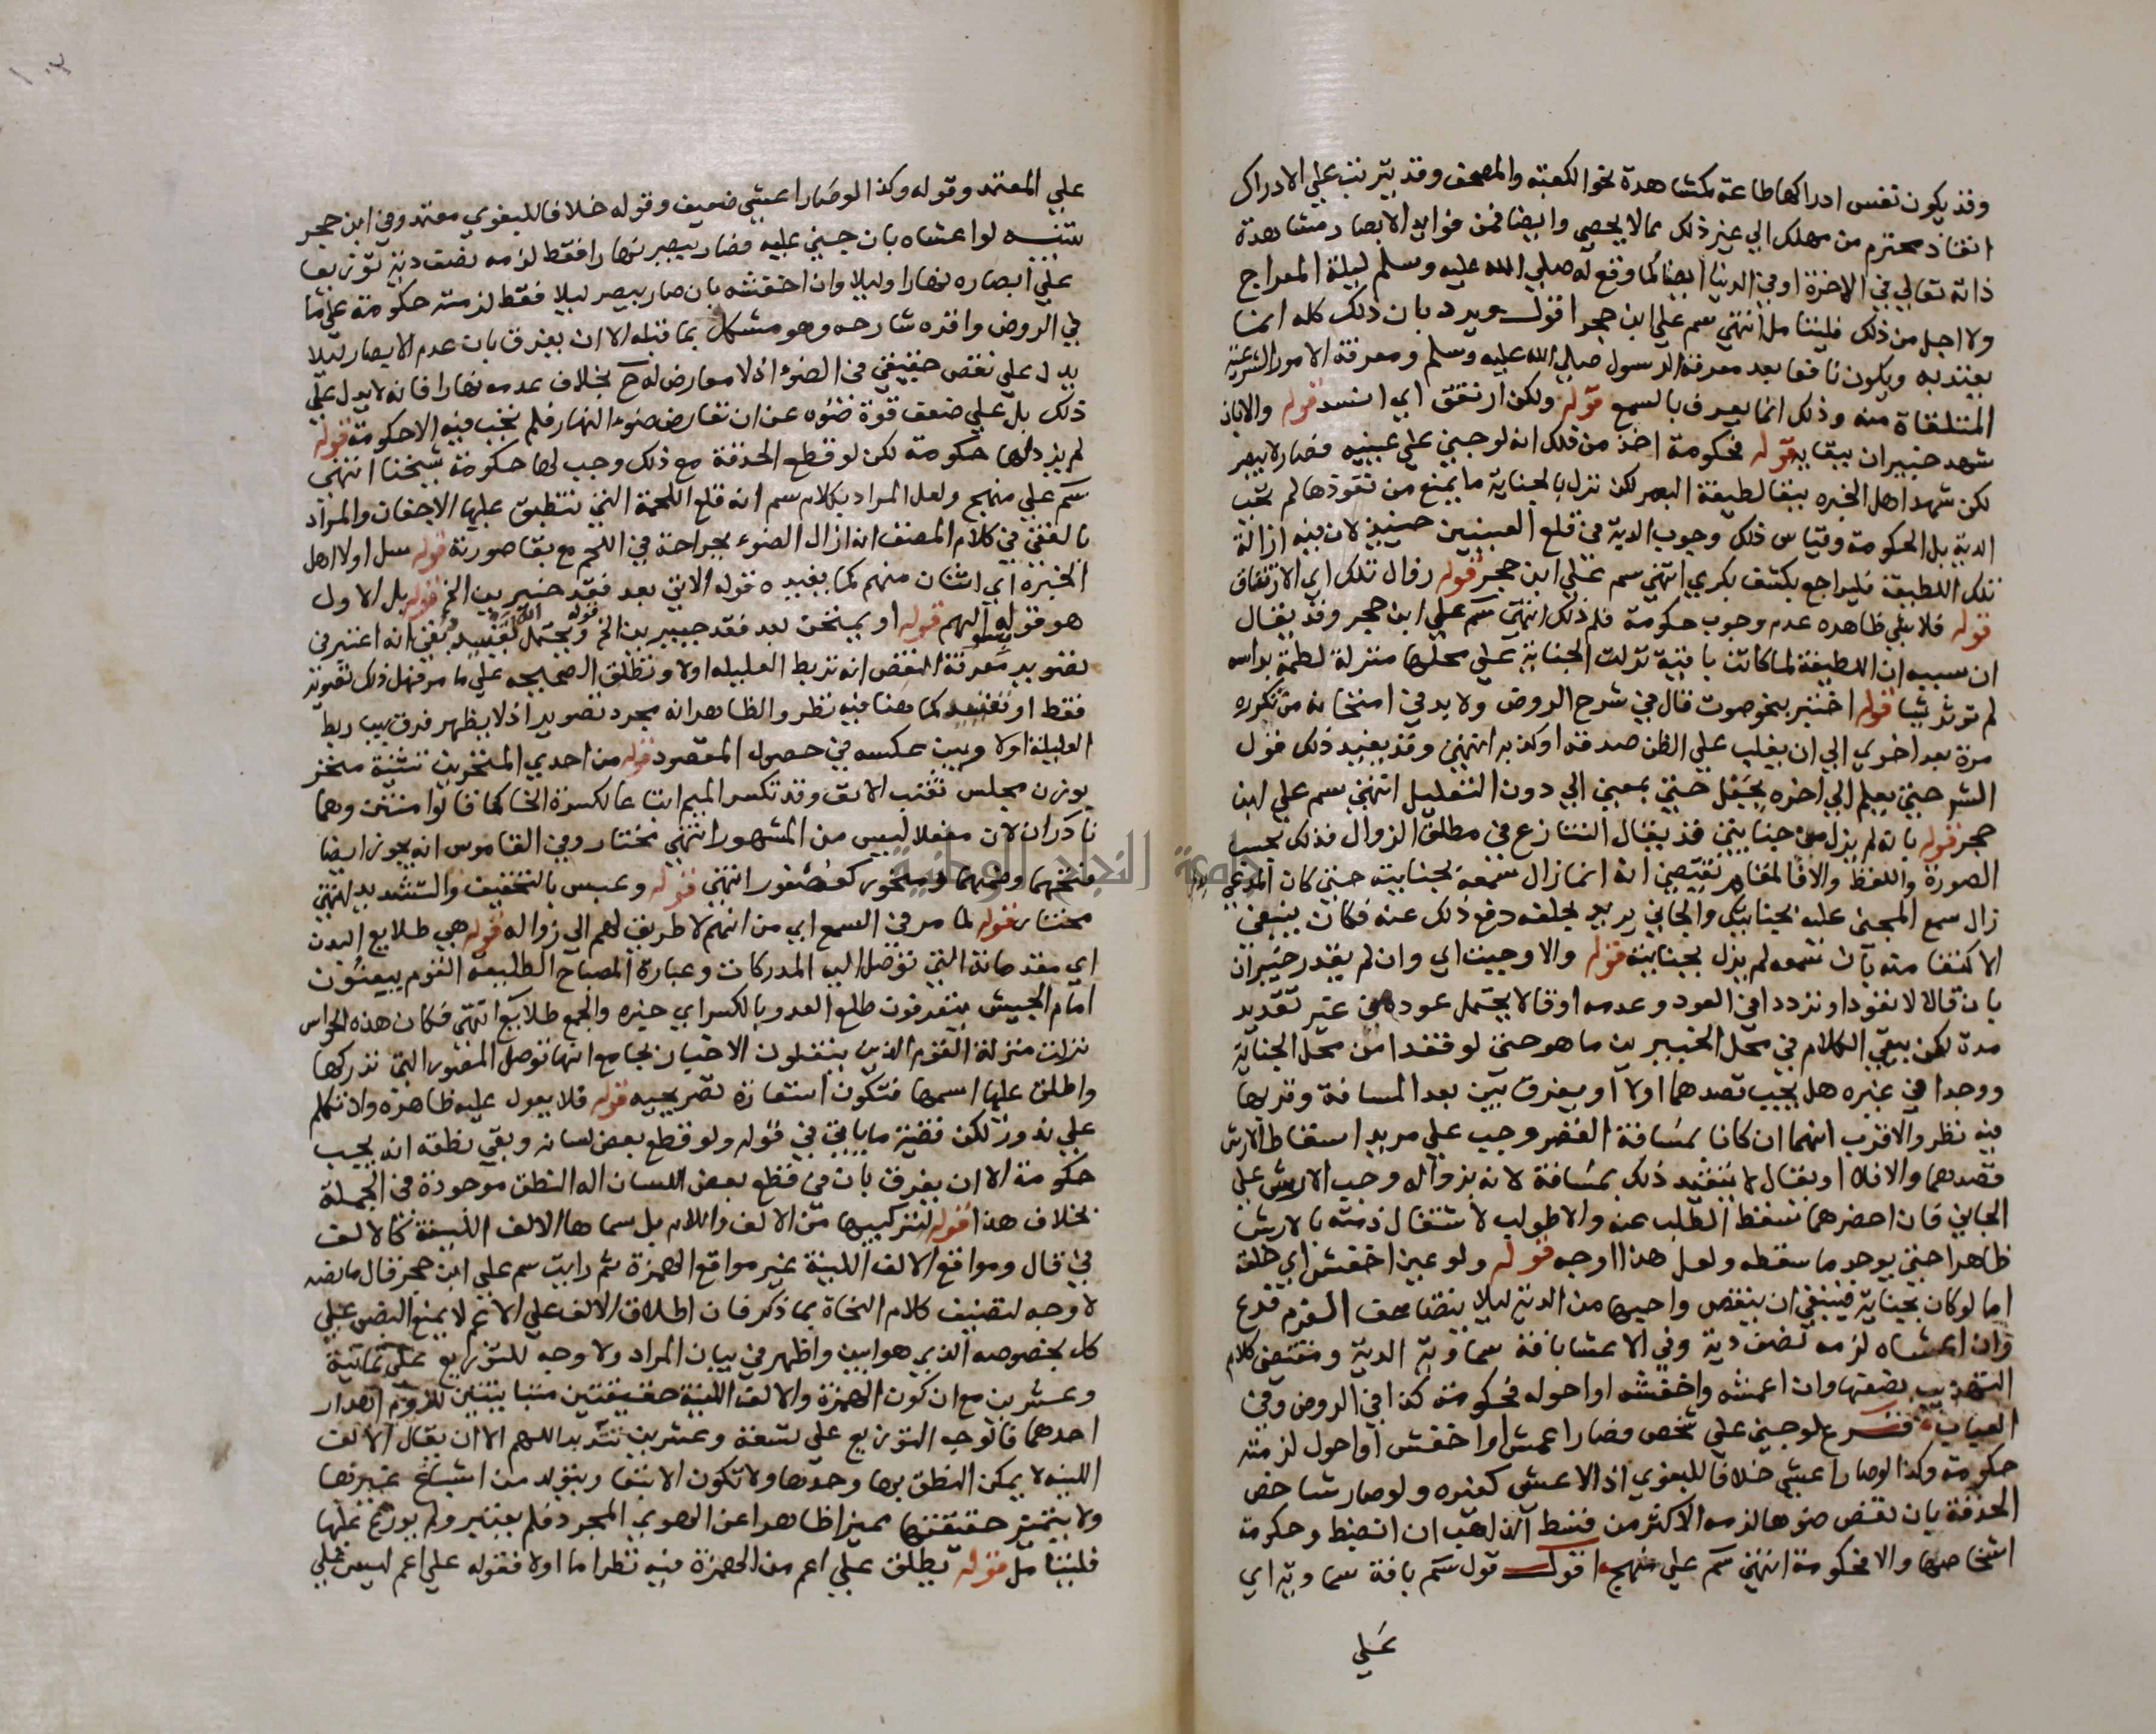 وقد يكون نفس ادراكها طاعة كمشاهدة نحو الكعبة والمصحف وقد يترتب علي الادراك
انقاذ محترم من مهلك الي غير ذلك مما لا يحصي وايضا فمن فوايد الابصار مشاهدة
ذاته تعالي في الاخرة او في الدنيا ايضا كما وقع له صلي الله عليه وسلم ليلة المعراج
ولا اجل من ذلك فليتامل انتهي سم علي ابن حجر اقول ويرد بان ذلك كله انما
يعتد به ويكون نافعا بعد معرفة الرسول صلي الله عليه وسلم ومعرفة الامور الشرعية
المتلقاة منه وذلك انما يعرف بالسمع قوله ولكن ارتتق اي انسد قوله والا بان
شهد خبيران ببقايه قوله فحكومة اخذ من ذلك انه لو جني علي عينيه فصار لا يبصر
لكن شهد اهل الخبره ببقا لطيفة البصر لكن نزل بالجناية ما يمنع من نفوذها لم تجب
الدية بل الحكومة وقياس ذلك وجوب الدية في قلع العينين حينيذ لان فيه ازالة
تلك اللطيفة فليراجع بكشف بكري انتهي سم علي ابن حجر قوله زوال تلك اي الارتتاق
قوله فلا ظاهره عدم وجوب حكومة فلم ذلك انتهي سم علي ابن حجر وقد يقال
ان سببه ان اللطيفة لما كانت باقية نزلت الجناية علي محلها منزلة لطمة براسه
لم توثر شيا قوله اختبر بنحو صوت قال في شرح الروض ولا بد في امتحانه من تكرره
مرة بعد اخري الي ان يغلب علي الظن صدقه او كذبه انتهي وقد يفيد ذلك قول
الشرح حتي يعلم الي اخره بجعل حتي بمعني الي دون التعليل انتهي سم علي ابن
حجر قوله بانه لم يزل من جنايتي قد يقال التنازع في مطلق الزوال فذلك بحسب
الصورة واللفظ والا فالمقام يقتضي انه انما زال سمعه بجنايته حتي كان المدعي
زال سمع المجني عليه بجنايتك والجاني يريد بحلفه دفع ذلك عنه فكان ينبغي
الاكتفا منه بان سمعه لم يزل بجنايته قوله والا وجبت اي وان لم يقدر خبيران
بان قالا لا نعود او ترددا في العود وعدمه او قالا يحتمل عوده من غير تقدير
مدة لكن يبقي الكلام في محل الخبيرين ما هو حتي لو فقدا من محل الجناية
ووجدا في غيره هل يجب قصدهما اولا او يفرق بين بعد المسافة وقربها
فيه نظر والاقرب انهما ان كانا بمسافة القصر وجب علي مريد اسقاط الارش
قصدهما والا فلا او يقال لا يتقيد ذلك بمسافة لانه بزواله وجب الارش علي
الجاني فان احضرهما سقط الطلب عنه والا طولب لاشتغال ذمته بالارش
ظاهرا حتي يوجد ما يسقطه ولعل هذا اوجه قوله ولو عين اخفش اي خلقة
اما لو كان بجناية فينبغي ان ينقص واجبها من الدية ليلا يتضاعف الغرم فرع
وان اعشاه لزمه نصف دية وفي الاعشا بافة سماوية الدية ومقتضي كلام
التهذيب نصفها وان اعمشه واخفشه او احوله فحكومة كذا في الروض وفي
العباب فرع لو جني علي شخص فصار اعمش او اخفش او احول لزمته
حكومة وكذا لو صار اعشي خلافا للبغوي اذ الاعشي كغيره ولو صار شاخص
الحدقة بان نقص ضوها لزمه الاكثر من قسط الذاهب ان انضبط وحكومة
اشخاصها والا فحكومة انتهي سم علي منهج اقول قول سم بافة سماوية اي
علي
علي المعتمد وقوله وكذا لو صار اعشي ضعيف وقوله خلافا للبغوي معتمد وفي ابن حجر
تنبيه لو اعشاه بان جني عليه فصار يبصر نهارا فقط لزمه نصف دية توزيعا
علي ابصاره نهارا وليلا وان اخفشه بان صار يبصر ليلا فقط لزمته حكومة علي ما
في الروض واقره شارحه وهو مشكل بما قبله الا ان يفرق بان عدم الابصار ليلا
يدل علي نقص حقيقي في الضوء اذ لا معارض له ح بخلاف عدمه نهارا فانه لا يدل علي
ذلك بل علي ضعف قوة ضوه عن ان تعارض ضوء النهار فلم تجب فيه الا حكومة قوله
لم يزد لها حكومة لكن لو قطع الحدقة مع ذلك وجب لها حكومة شيخنا انتهي
سم علي منهج ولعل المراد بكلام سم انه قلع اللحمة التي تنطبق عليها الاجفان والمراد
بالفقئ في كلام المصنف انه ازال الضوء بجراحة في اللحم مع بقا صورته قوله سل اولا اهل
الخبرة اي اثنان منهم كما يفيده قوله الاتي بعد فقد خبيرين الخ قوله بل الاول
هو قوله اليهم قوله او يمتحن بعد فقد خبيرين الخ ويحتمل بمعني انه اعتبر في
تصوير معرفة النقص انه تربط العليله اولا وتطلق الصحيحه علي ما مر فهل ذلك تصوير
فقط او تقييد كما هنا فيه نظر والظاهر انه مجرد تصوير اذ لا يظهر فرق بين ربط
العليلة اولا وبين عكسه في حصول المقصود قوله من احدي المنخرين تثنية منخر
بوزن مجلس ثقب الانف وقد تكسر الميم اتباعا لكسرة الخا كما قالوا منتن وهما
نادران لان مفعلا ليس من المشهور انتهي مختار وفي القاموس انه يجوز ايضا
فتحهما وضمهما ومنخور كعصفور انتهي قوله وعبس بالتخفيف والتشديد انتهي
مختار قوله لما مر في السمع اي من انهم لا طريق لهم الي زواله قوله هي طلايع البدن
اي مقدماته التي توصل اليه المدركات وعبارة المصباح الطليعة القوم يبعثون
امام الجيش يتعرفون طلع العدو بالكسر اي خبره والجمع طلايع انتهي فكان هذه الحواس
نزلت منزلة القوم الذين ينقلون الاخبار بجامع انها توصل المعنى التي تدركها
واطلق عليها اسمها فتكون استعارة تصريحيه قوله فلا يعول عليه ظاهره وان تكلم
علي ندور لكن قضية ما ياتي في قوله ولو قطع بعض لسانه وبقي نطقه انه يجب
حكومة الا ان يفرق بان في قطع بعض اللسان اله النطق موجودة في الجملة
بخلاف هذا قوله لتركيبها من الالف واللام بل سماها الالف اللينة كالالف
في قال ومواقع الالف اللينة غير مواقع الهمزة ثم رايت سم علي ابن حجر قال ما نصه
لا وجه لتضعيف كلام النحاة بما ذكر فان اطلاق الالف علي الاعم لا يمنع النص علي
كل بخصوصه الذي هو ابين واظهر في بيان المراد ولا وجه للتوزيع علي ثمانية
وعشرين مع ان كون الهمزة والالف اللينة حقيقتين متباينتين للزوم اهدار
احدهما فالوجه التوزيع علي تسعة وعشرين اللهم الا ان يقال الالف
اللينه لا يمكن النطق بها وحدها ولا تكون الا تبعا ويتولد من اشباع غيرها
ولا يتميز حقيقتها تميزا ظاهرا عن الهوي المجرد فلم يعتبر ولم يوزع عليها
فليتامل قوله يطلق علي اعم من الهمزة فيه نظر اما اولا فقوله علي اعم ليس علي